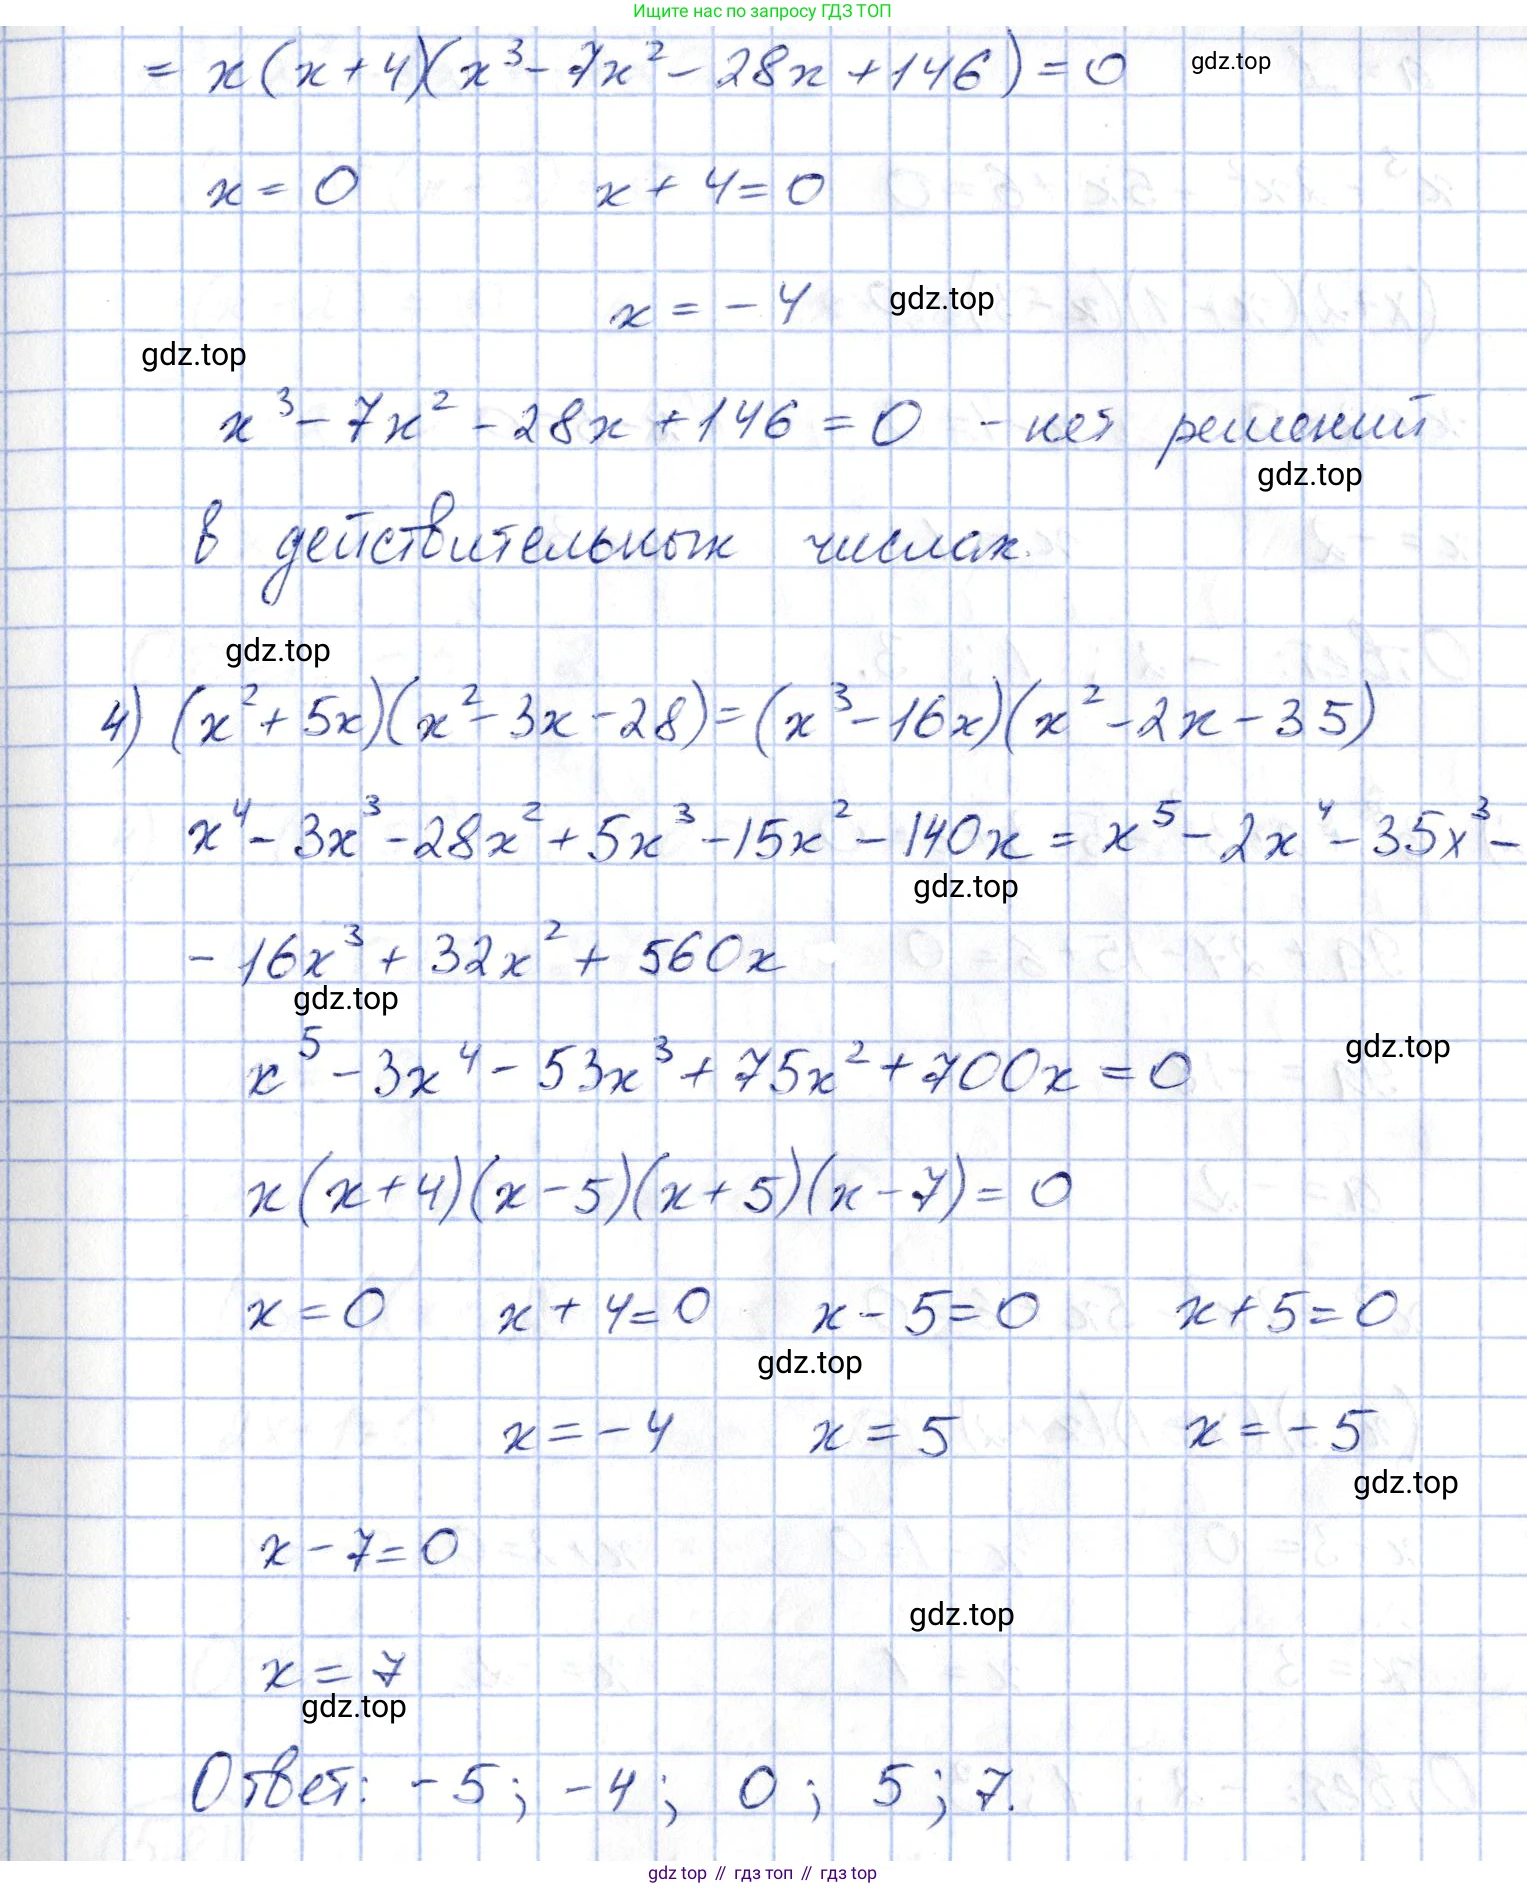 Ищите нас по запросу ГДЗ ТОП
= x(x+4)(x³-7x²-28x+146)=0
gdz.top
x=0 x+4=0
x=-4
gdz.top
gdz.top
x³-7x²-28x+146=0 - нет решений
gdz.top
в действительных числах.
gdz.top
4) (x²+5x)(x²-3x-28)=(x³-16x)(x²-2x-35)
x⁴-3x³-28x²+5x³-15x²-140x=x⁵-2x⁴-35x³-
gdz.top
-16x³+32x²+560x
gdz.top
gdz.top
x⁵-3x⁴-53x³+75x²+700x=0
x(x+4)(x-5)(x+5)(x-7)=0
x=0 x+4=0 x-5=0 x+5=0
gdz.top
x=-4 x=5 x=-5
gdz.top
x-7=0
gdz.top
x=7
gdz.top
Ответ: -5; -4; 0; 5; 7.
gdz top // гдз топ // gdz top